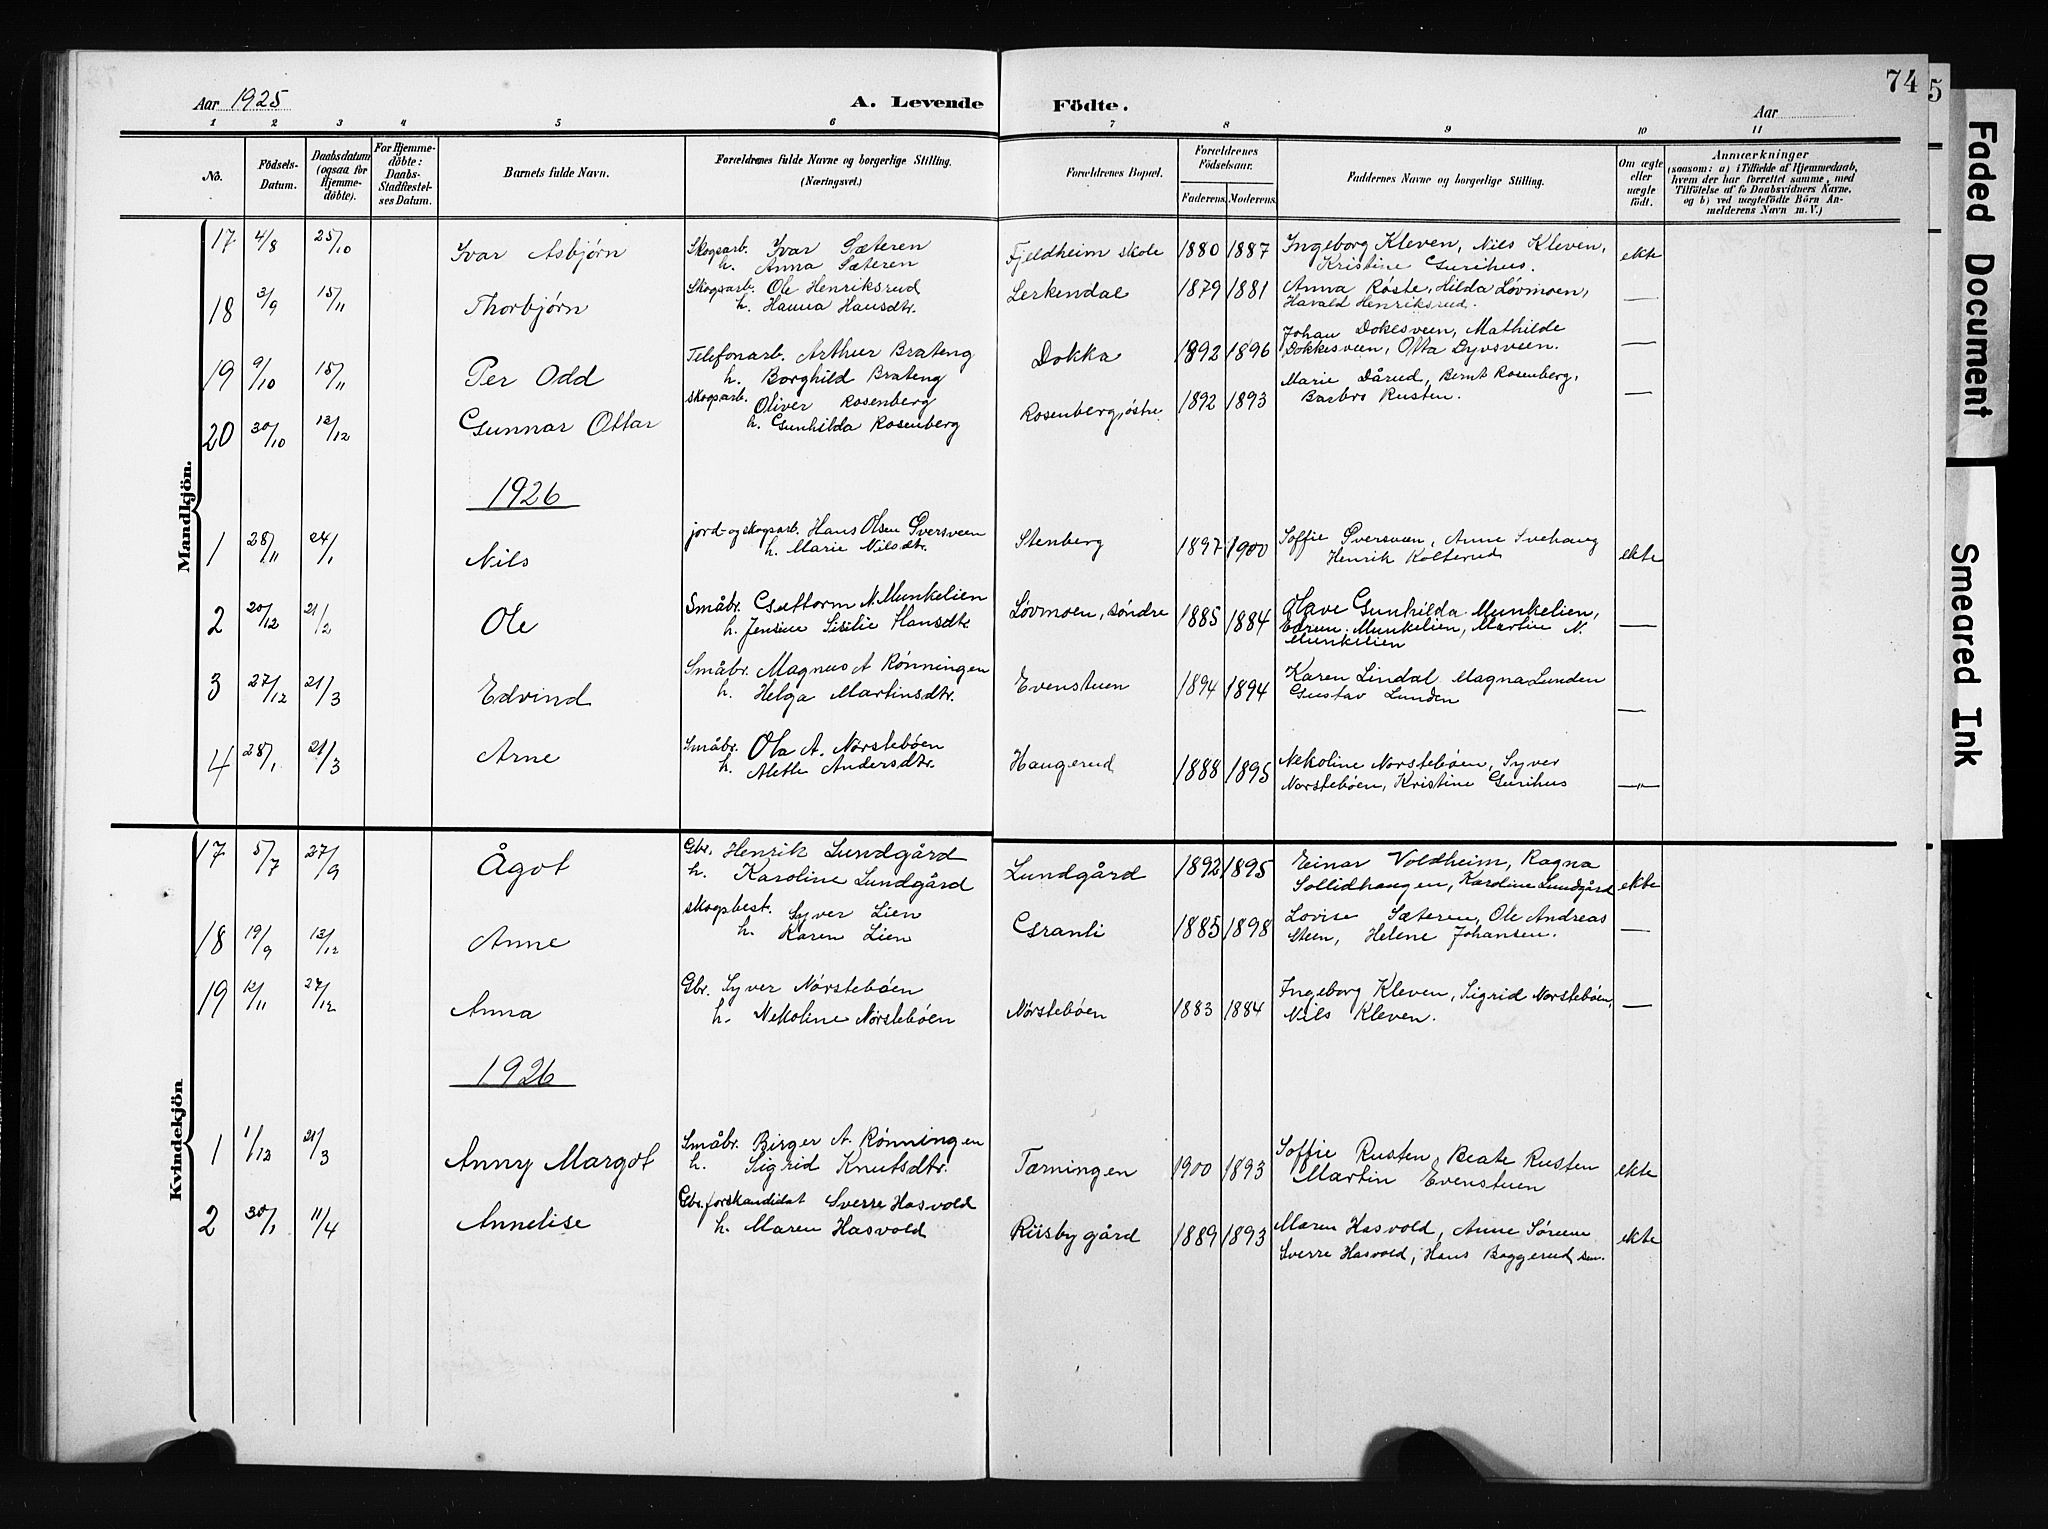 74
5
Aar 1925
A. Levende
Födte.
Aar
1 2 3 4 5 6 7 8 9 10 11
No.
Födsels-Datum.
Daabsdatum (ogsaa for Hjemme-döbte).
For Hjemme-döbte: Daabs-Stadfæstel-ses Datum.
Barnets fulde Navn.
Forældrenes fulde Navne og borgerlige Stilling.
(Næringsvei.)
Forældrenes Bopæl.
Forældrenes Födselsaar.
Faderens. Moderens.
Faddernes Navne og borgerlige Stilling.
Om ægte eller uægte födt.
Anmærkninger
(saasom: a) i Tilfælde af Hjemmedaab, hvem der har forrettet samme, med Tilföielse af to Daabsvidners Navne, og b) ved uægtefödte Börn An-melderens Navn m. V.)
Mandkjön.
17 4/8 25/10 Ivar Asbjørn Skogsarb. Ivar Sæteren
h. Anna Sæteren
Fjeldheim skole 1880 1887 Ingeborg Kleven, Nils Kleven,
Kristine Gurihus. ekte
18 3/9 15/11 Thorbjørn Skogsarb. Ole Henriksrud
h. Hanna Hansdtr.
Lerkendal 1879 1881 Anna Røste, Hilda Løvmoen,
Harald Henriksrud. —
19 9/10 15/11 Per Odd Telefonarb. Arthur Brateng
h. Borghild Brateng
Dokka 1892 1896 Johan Dokesveen, Mathilde
Dokkesveen, Otta Lyvsveen. —
20 30/10 13/12 Gunnar Ottar skogsarb. Oliver Rosenberg
h. Gunhilda Rosenberg
Rosenberg, østre 1892 1893 Marie Dårud, Bernt Rosenberg,
Barbro Rusten. —
1926
1 28/11 24/1 Nils jord- og skogsarb. Hans Olsen Sversveen
h. Marie Nilsdtr.
Stenberg 1897 1900 Soffie Sversveen, Anne Svehaug
Henrik Kolterud ekte
2 20/12 21/2 Ole Småbr. Guttorm N. Munkelien
h. Jensine Sisilie Hansdtr.
Løvmoen, søndre 1885 1884 Olave Gunhilda Munkelien,
Munkelien, Martin N.
Munkelien —
3 27/12 21/3 Edvind Småbr. Magnus A Rønningen
h. Helga Martinsdtr.
Evenstuen 1894 1894 Karen Lindal Magna Lunden
Gustav Lunden —
4 28/1 21/3 Arne Småbr. Ola A. Nørstebøen
h. Alette Andersdtr.
Haugerud 1888 1895 Nekoline Nørstebøen, Syver
Nørstebøen, Kristine Gurihus —"—
Kvindekjön
17 5/7 27/9 Ågot Gbr. Henrik Lundgård
h. Karoline Lundgård
Lundgård 1892 1895 Einar Voldheim, Ragna
Sollidhaugen, Karoline Lundgård ekte
18 19/9 13/12 Anne skogsbest. Syver Lien
h. Karen Lien
Granli 1885 1898 Lovise Sæteren, Ole Andreas
Steen, Helene Johansen. —
19 12/11 27/12 Anna Gbr. Syver Nørstebøen
h. Nekoline Nørstebøen
Nørstebøen 1883 1884 Ingeborg Kleven, Sigrid Nørstebøen,
Nils Kleven. —
1926
1 1/12 21/3 Anny Margot Småbr. Birger A. Rønningen
h. Sigrid Knutsdtr.
Tærningen 1900 1893 Soffie Rusten, Beate Rusten
Martin Evenstuen ekte
2 30/1 11/4 Annelise Gbr. forskandidat Sverre Hasvold
h. Maren Hasvold
Riisby gård 1889 1893 Maren Hasvold, Anne Sørum
Sverre Hasvold, Hans Baggerud sen. ekte
Faded Document
Smeared Ink